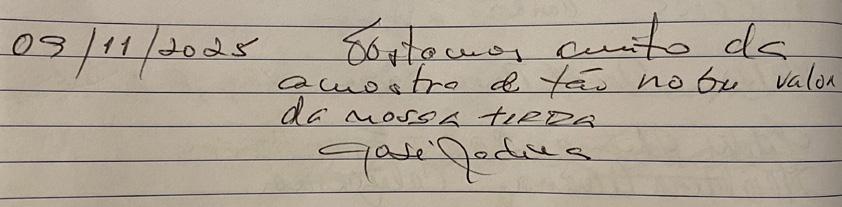 09/11/2025 Gostamos muito da
amostra de tão nobre valor
da nossa terra
José